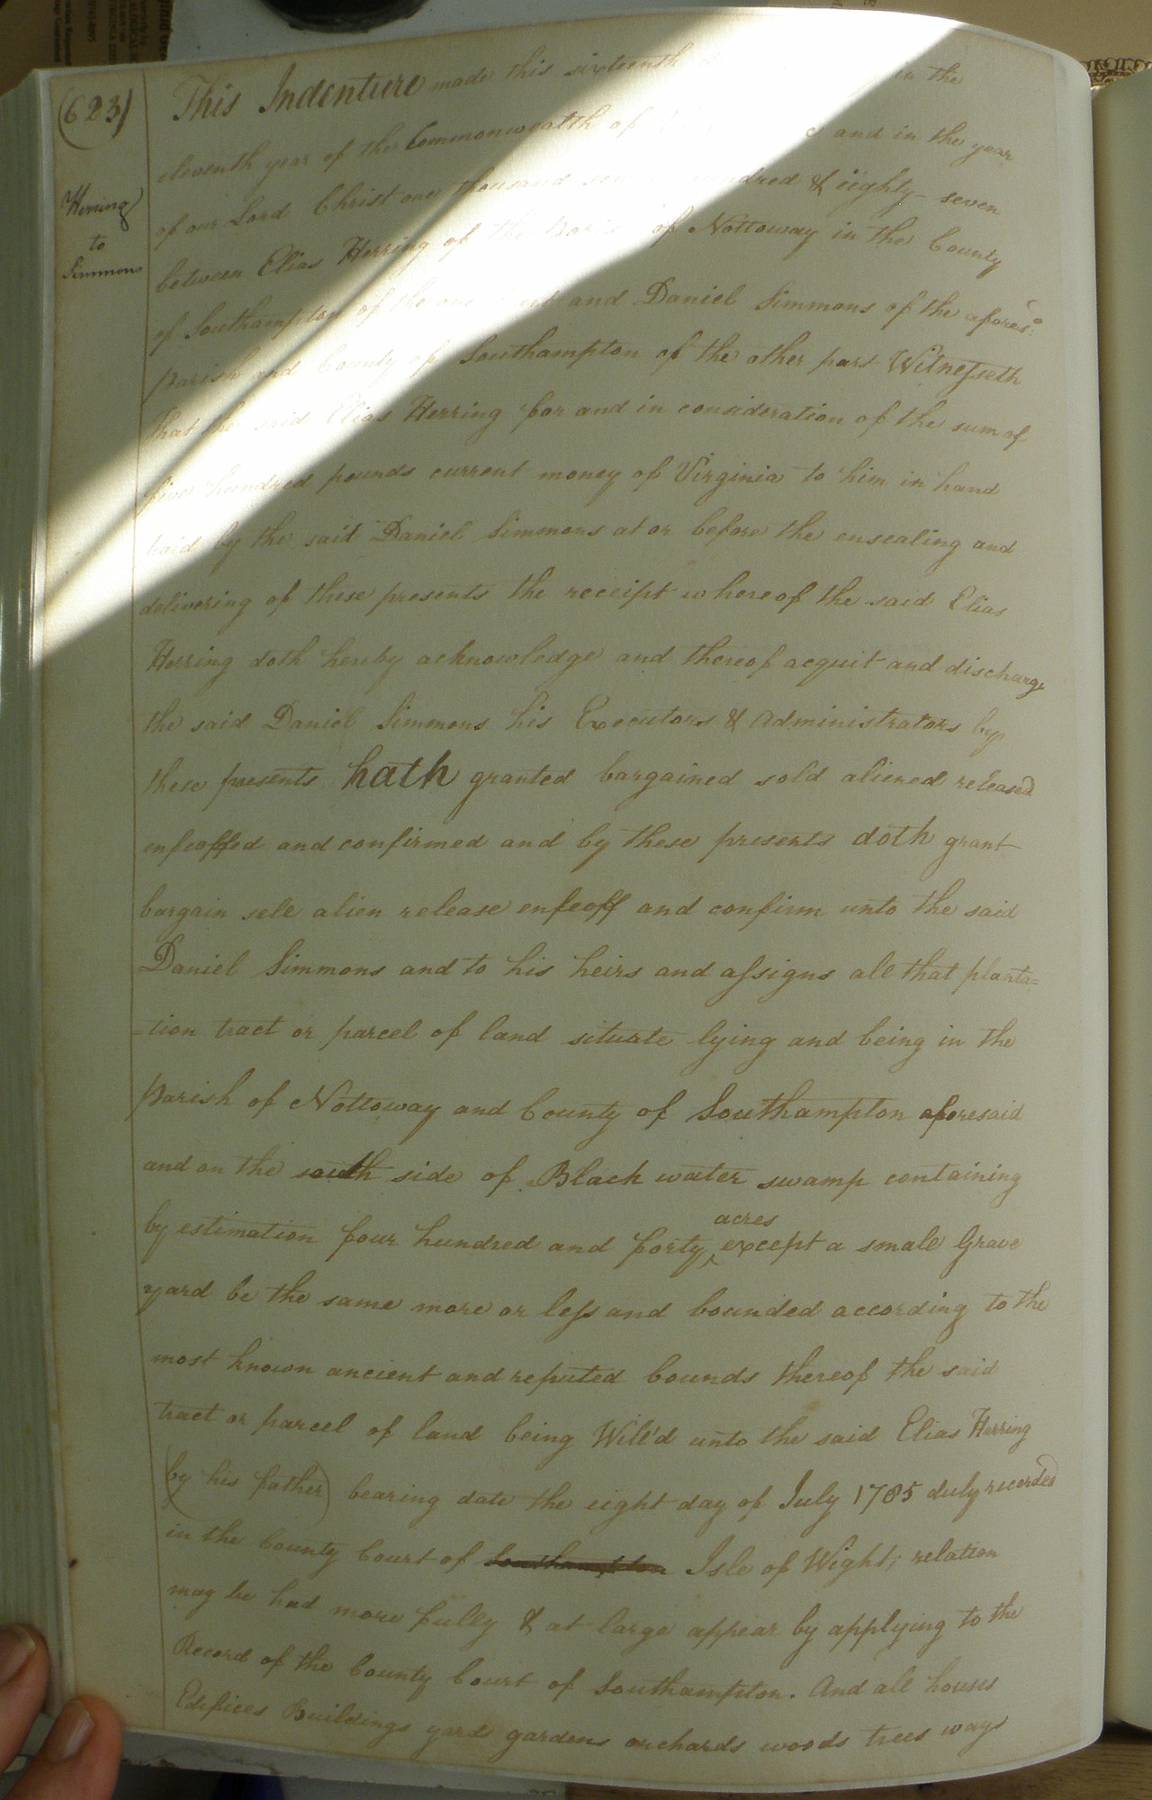 (623)
Herring
to
Simmons
This Indenture made this sixteenth in the
eleventh year of the Commonwealth of and in the year
of our Lord Christ one thousand seven hundred & eighty-seven
between Elias Herring of the Parish of Nottoway in the County
of Southampton of the one part and Daniel Simmons of the afores:d
parish and County of Southampton of the other part Witnesseth
that the said Elias Herring for and in consideration of the sum of
five hundred pounds current money of Virginia to him in hand
paid by the said Daniel Simmons at or before the ensealing and
delivering of these presents the receipt whereof the said Elias
Herring doth hereby acknowledge and thereof acquit and discharge
the said Daniel Simmons his Executors & Administrators by
these presents hath granted bargained sold aliened released
enfeoffed and confirmed and by these presents doth grant
bargain sell alien release enfeoff and confirm unto the said
Daniel Simmons and to his heirs and assigns all that planta=
=tion tract or parcel of land situate lying and being in the
parish of Nottoway and County of Southampton aforesaid
and on the south side of Black water swamp containing
by estimation four hundred and forty acres except a small Grave
yard be the same more or less and bounded according to the
most known ancient and reputed bounds thereof the said
tract or parcel of land being Will'd unto the said Elias Herring
(by his father) bearing date the eight day of July 1785 duly recorded
in the County Court of Southampton Isle of Wight; relation
may be had more fully & at large appear by applying to the
Record of the County Court of Southampton. And all houses
Edifices Buildings yard gardens orchards woods trees ways